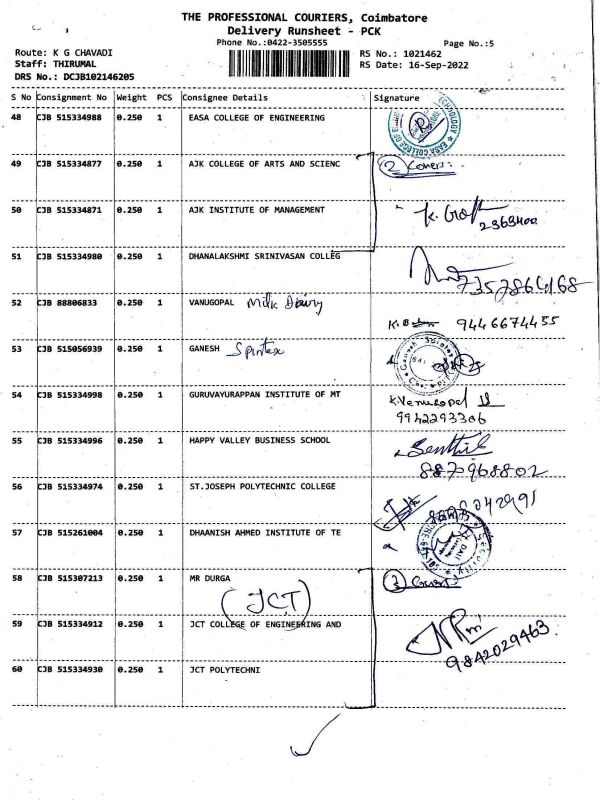 THE PROFESSIONAL COURIERS, Coimbatore
Delivery Runsheet - PCK
Phone No.:0422-3505555
Page No.:5
Route: K G CHAVADI
RS No.: 1021462
Staff: THIRUMAL
RS Date: 16-Sep-2022
DRS No.: DCJB102146205
S No Consignment No Weight PCS Consignee Details Signature
48 CJB 515334988 0.250 1 EASA COLLEGE OF ENGINEERING
49 CJB 515334877 0.250 1 AJK COLLEGE OF ARTS AND SCIENC
2 Covers:
50 CJB 515334871 0.250 1 AJK INSTITUTE OF MANAGEMENT
2363400
51 CJB 515334980 0.250 1 DHANALAKSHMI SRINIVASAN COLLEG
7357864168
52 CJB 88806833 0.250 1 VANUGOPAL Milk Dairy
9446674455
53 CJB 515056939 0.250 1 GANESH Spintex
54 CJB 515334998 0.250 1 GURUVAYURAPPAN INSTITUTE OF MT
K Venugopal
9942293306
55 CJB 515334996 0.250 1 HAPPY VALLEY BUSINESS SCHOOL
Senthil
8870968802
56 CJB 515334974 0.250 1 ST.JOSEPH POLYTECHNIC COLLEGE
57 CJB 515261004 0.250 1 DHAANISH AHMED INSTITUTE OF TE
58 CJB 515307213 0.250 1 MR DURGA
(JCT)
3
59 CJB 515334912 0.250 1 JCT COLLEGE OF ENGINEERING AND
9842029463
60 CJB 515334930 0.250 1 JCT POLYTECHNI